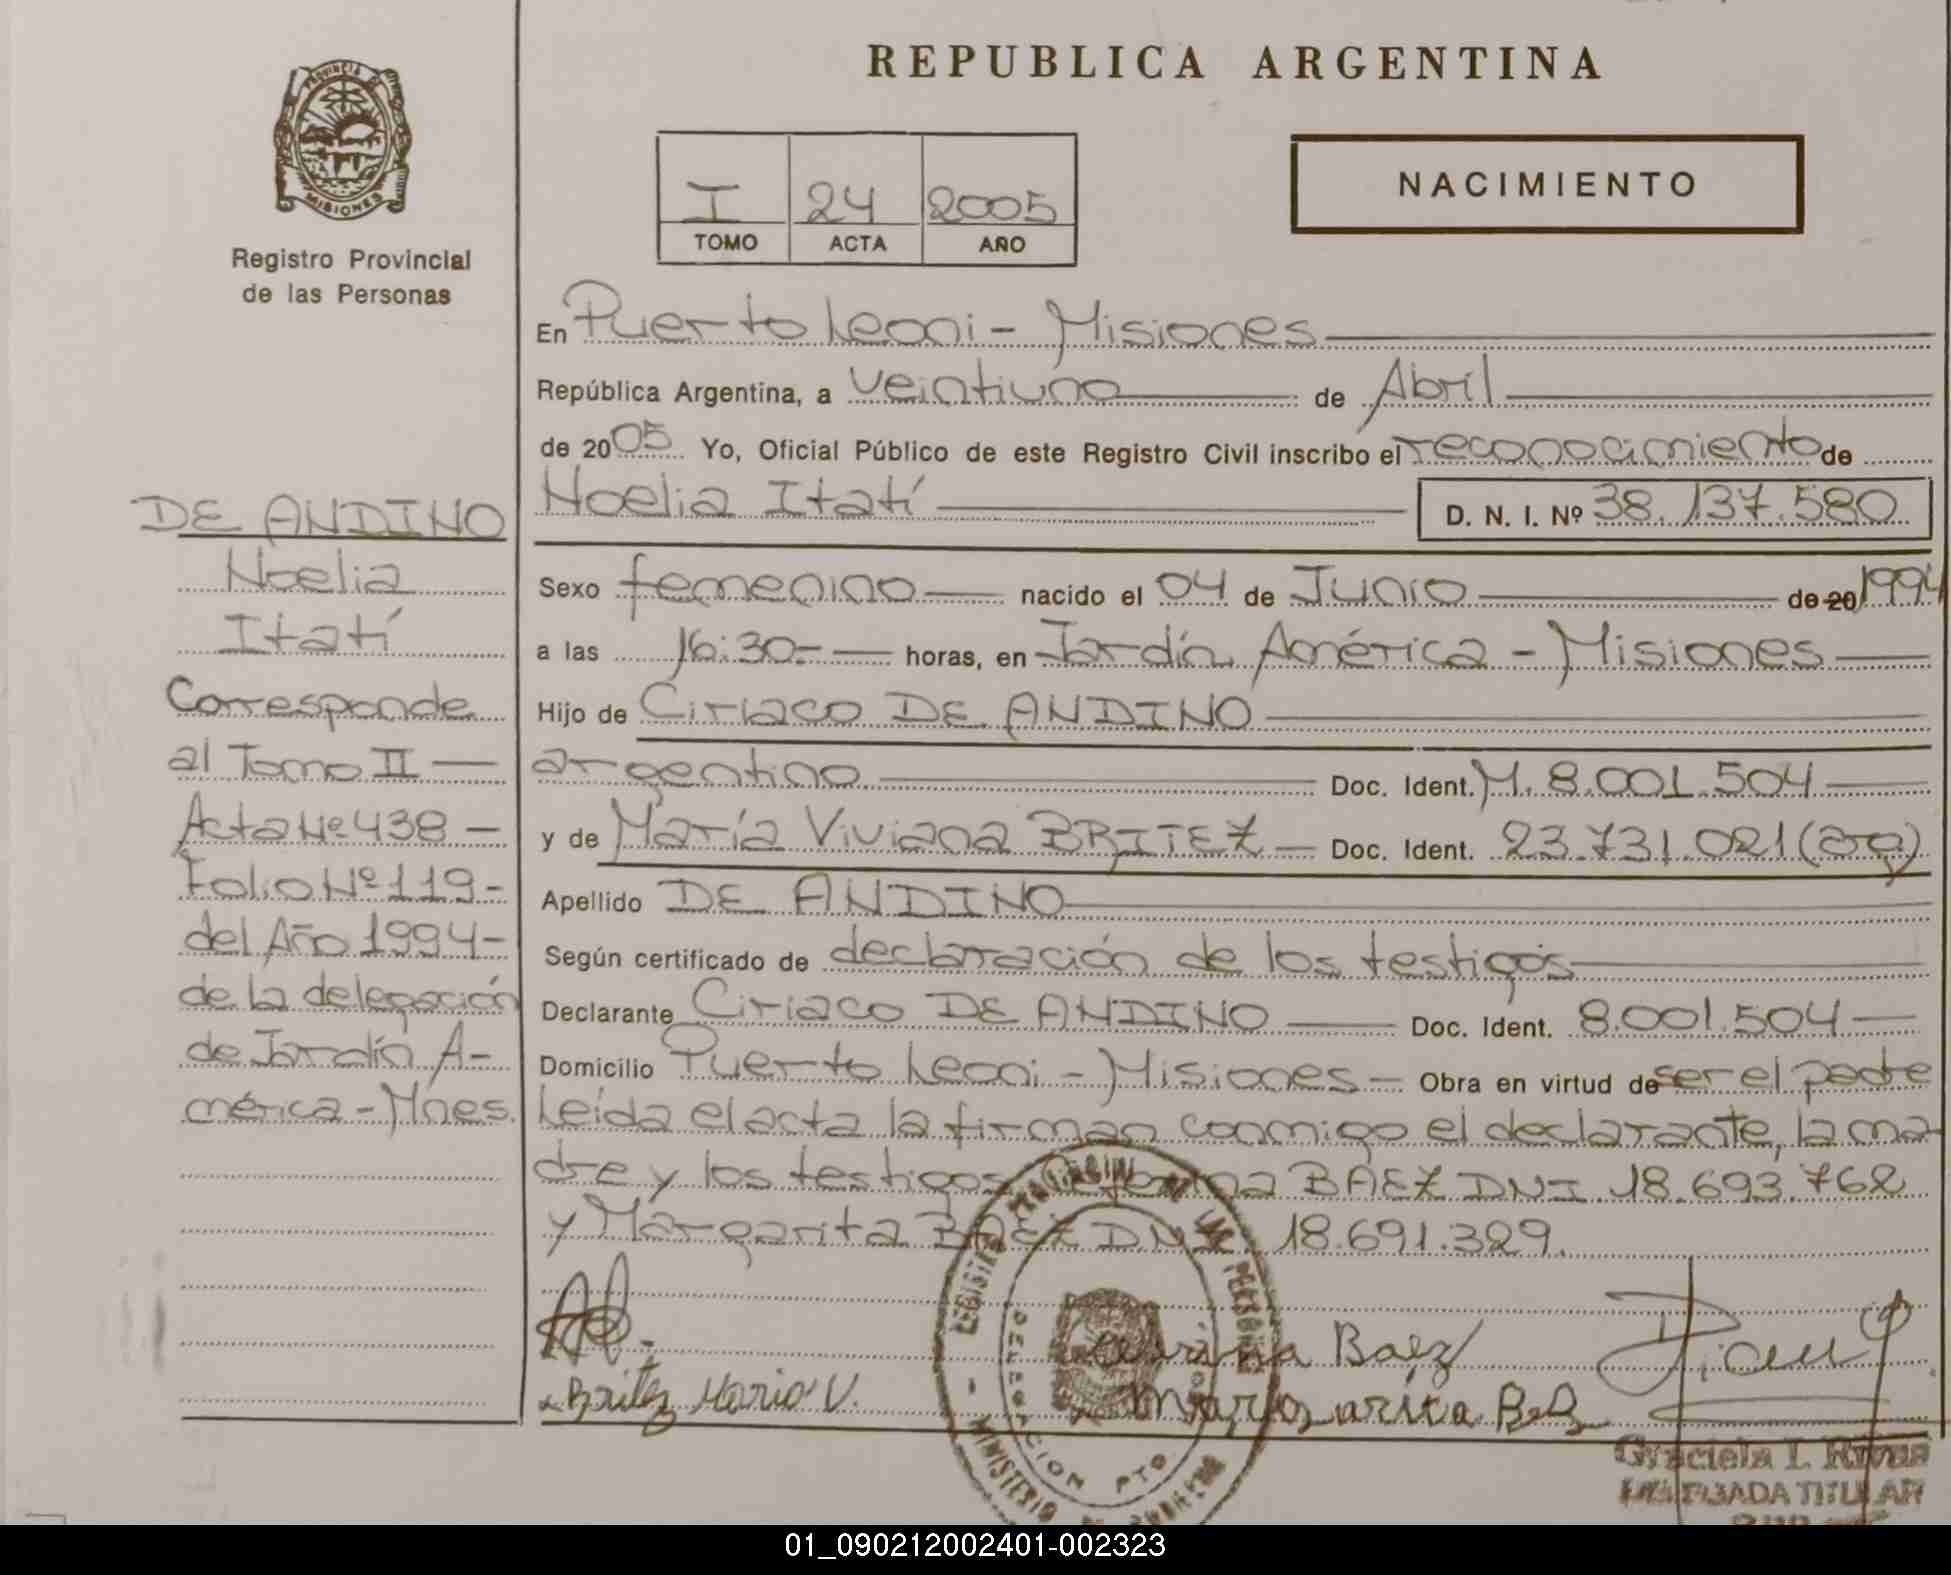 REPUBLICA ARGENTINA
PROVINCIA DE
MISIONES
Registro Provincial
de las Personas
I 24 2005
TOMO ACTA AÑO
NACIMIENTO
En Puerto Leoni - Misiones
República Argentina, a veintiuno de Abril
de 2005 Yo, Oficial Público de este Registro Civil inscribo el reconocimiento de
Noelia Itatí D. N. I. Nº 38.137.580
Sexo femenino nacido el 04 de Junio de 20 1994
a las 16:30.- horas, en Jardín América - Misiones
Hijo de Ciriaco DE ANDINO
argentino Doc. Ident. M. 8.001.504
y de María Viviana BRITEZ Doc. Ident. 23.731.021 (arg)
Apellido DE ANDINO
Según certificado de declaración de los testigos
Declarante Ciriaco DE ANDINO Doc. Ident. 8.001.504
Domicilio Puerto Leoni - Misiones - Obra en virtud de ser el padre
Leída el acta la firman conmigo el declarante, la ma-
dre y los testigos BAEZ DNI 18.693.762
y Margarita BAEZ DNI 18.691.329.
DE ANDINO
Noelia
Itatí
Corresponde
al Tomo II
Acta Nº 438 -
Folio Nº 119 -
del Año 1994 -
de la delegación
de Jardín A-
mérica - Mnes.
Baez
Britez Maria V.
Margarita
Graciela I. Rivas
TITULAR
01_090212002401-002323